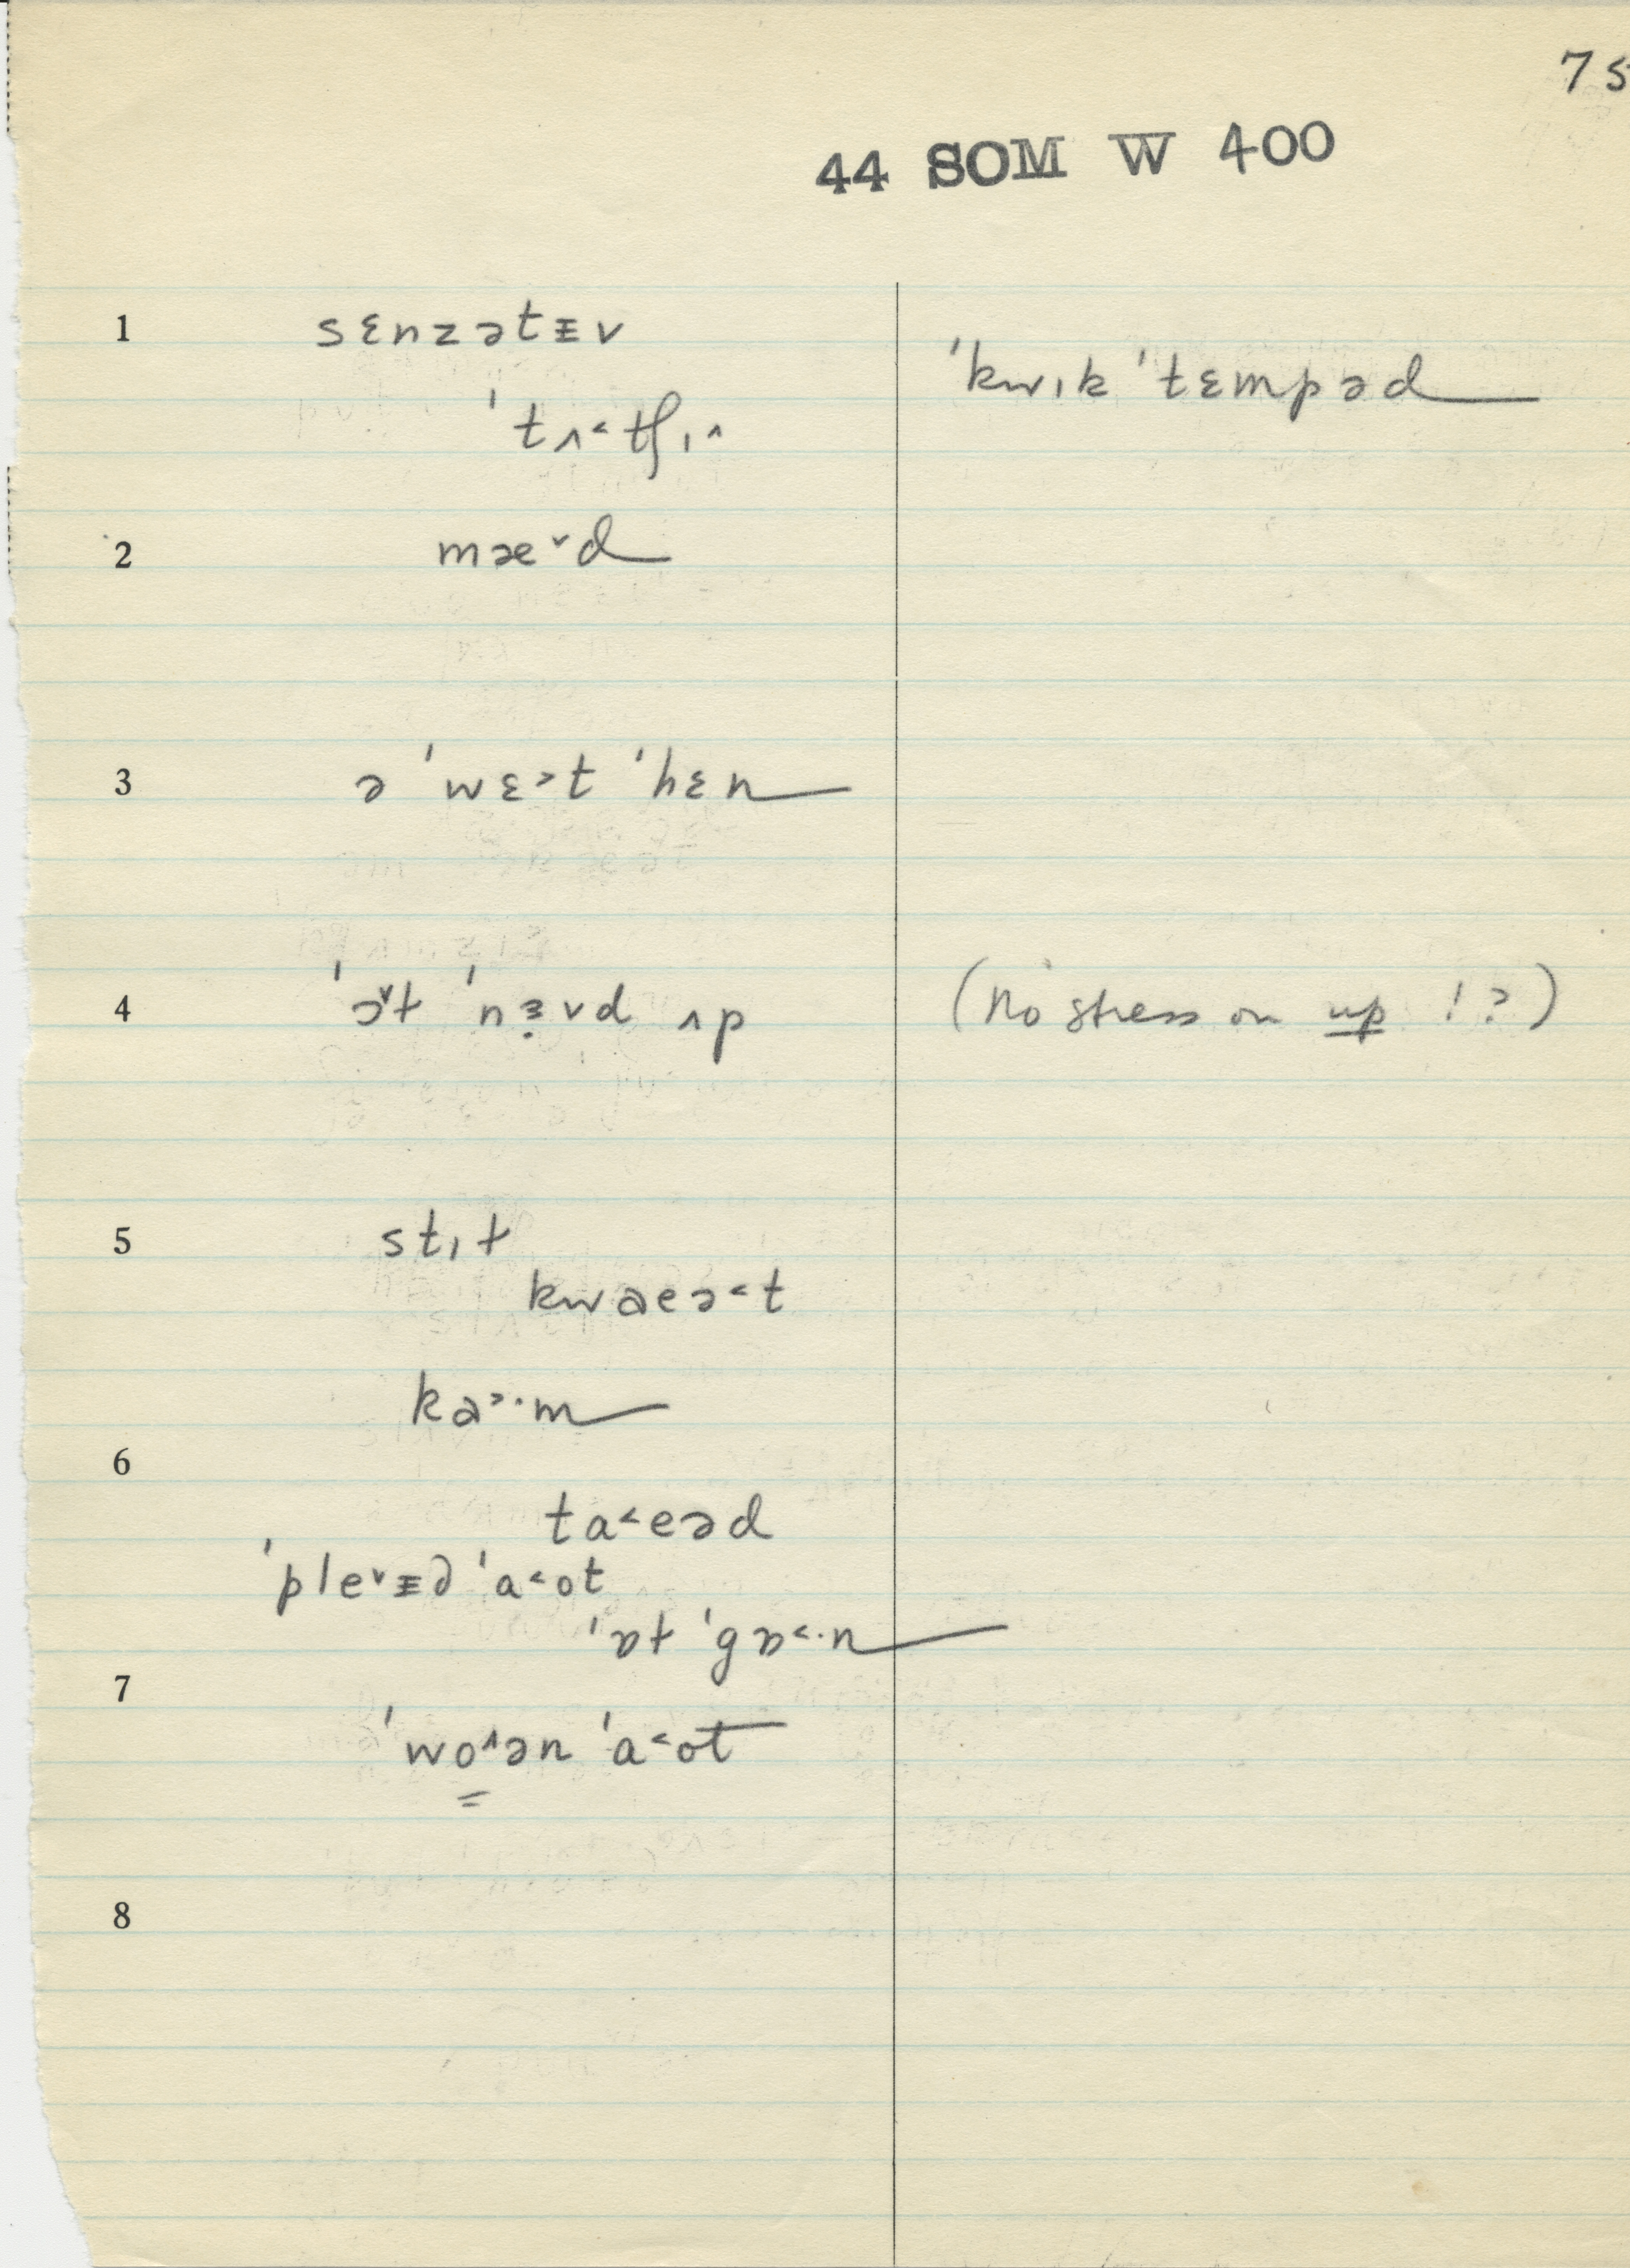 75
44 SOM W 400
1 sɛnzətᵻv
ˈkwɪk ˈtɛmpəd
ˈtʌ˂tʃɪ˄
2 mæ˅d
3 ə ˈwɛ˃t ˈhɛn
4 ˈɔ˅ɫ ˈnɜ̣˅d ʌp (no stress on up !?)
5 stɪɫ
kwaeə˂t
ka˃·m
6
ta˂eəd
ˈple˅ᵻd ˈa˂ot
ˈɒɫ ˈgɒ˂·n
7
ˈwo̳˄ən ˈa˂ot
8